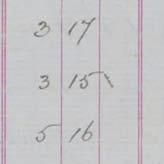 3 17
3 15
5 16